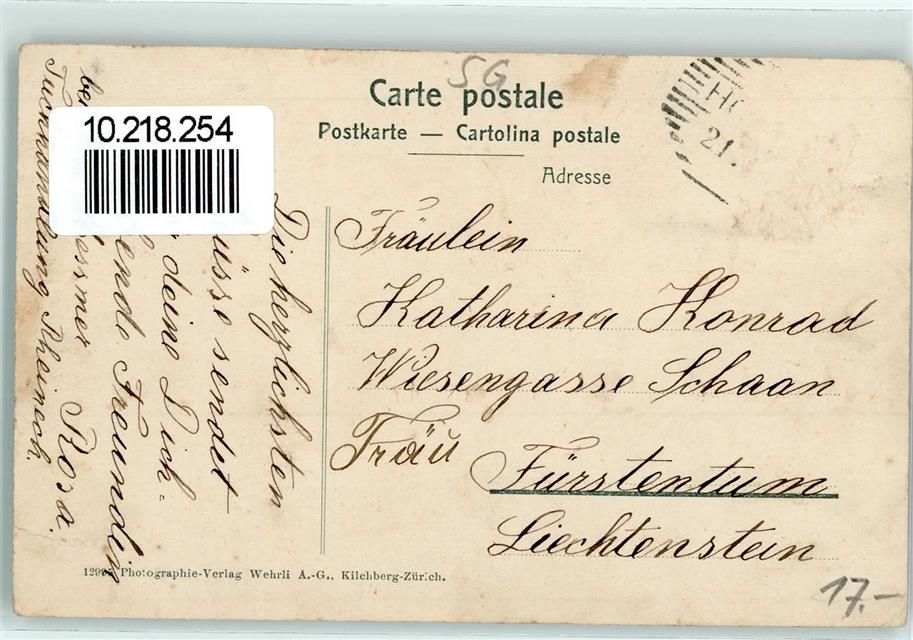 SG
Carte postale
Postkarte — Cartolina postale
Adresse
HO
21.
10.218.254
Die herzlichsten
üsse sendet
deine Dich=
ende Freundin
Rosa.
bei
Tuchhandlung Rheineck.
Fräulein
Katharina Konrad
Wiesengasse Schaan
Fräu
Fürstentum
Liechtenstein
Photographie-Verlag Wehrli A.-G., Kilchberg-Zürich.
17.-